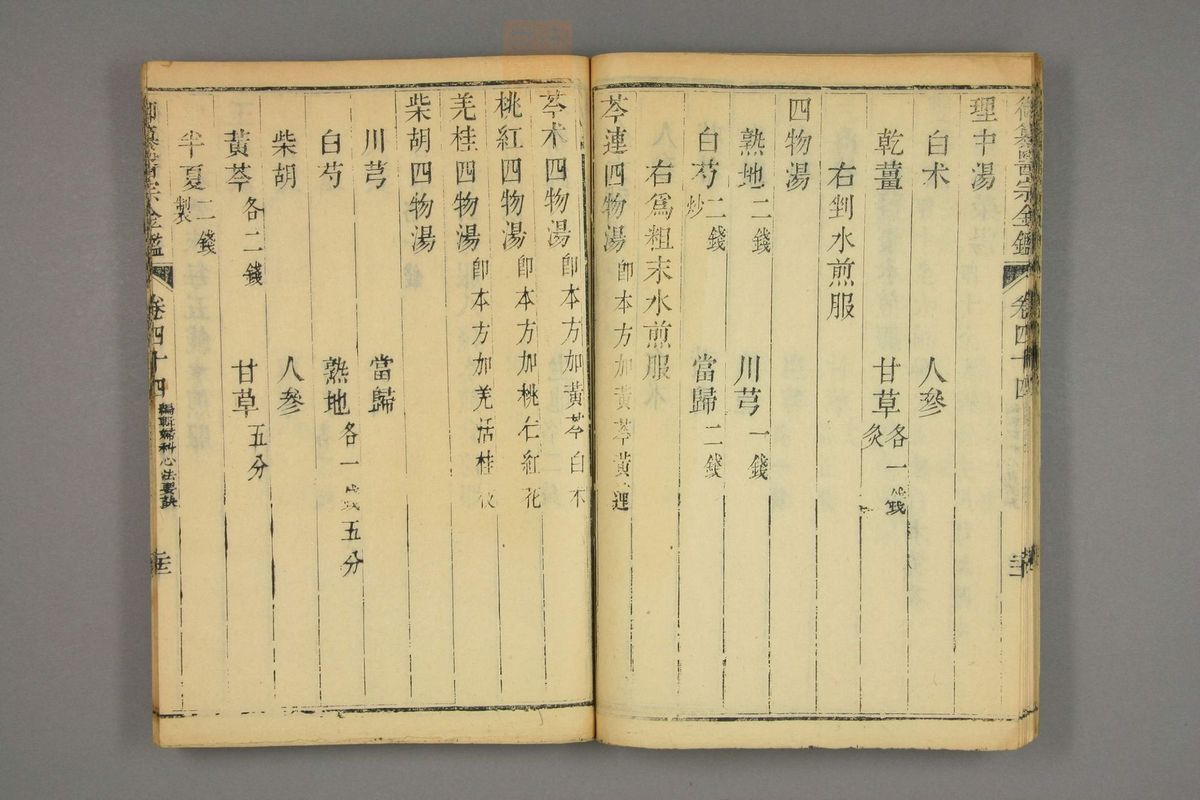 御纂醫宗金鑑 卷四十四
理中湯
白术 人參
乾薑 甘草各一錢炙
右剉水煎服
四物湯
熟地二錢 川芎一錢
白芍二錢炒 當歸二錢
右為粗末水煎服
芩連四物湯 即本方加黃芩黃連
芩术四物湯 即本方加黃芩白术
桃紅四物湯 即本方加桃仁紅花
羌桂四物湯 即本方加羌活桂枝
柴胡四物湯
川芎 當歸
白芍 熟地各一錢五分
柴胡 人參
黃芩各二錢 甘草五分
半夏二錢製
御纂醫宗金鑑 卷四十四 編輯婦科心法要訣